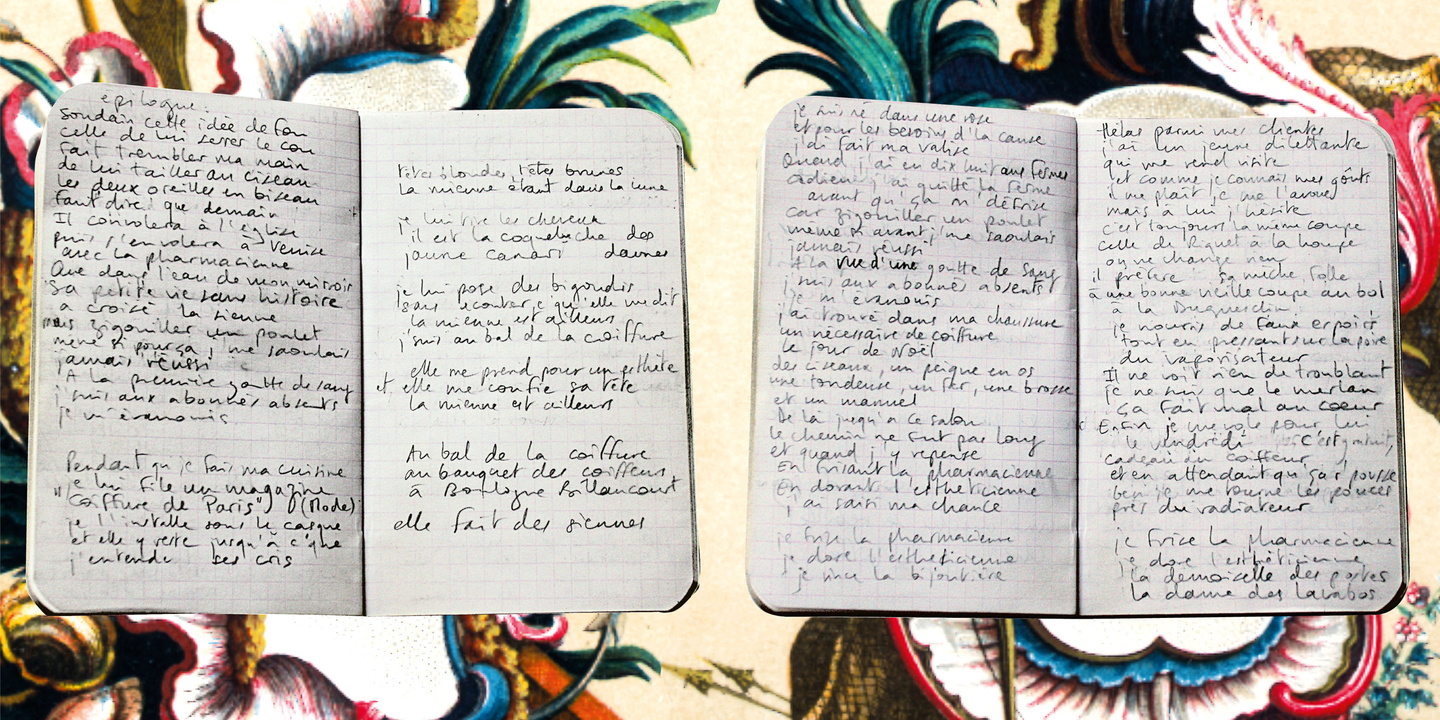 epilogue.
Soudain cette idée de fou
celle de lui serrer le cou
fait trembler ma main
de lui tailler au ciseau
les deux oreilles en biseau
faut dire que demain
Il convolera à l'église
puis s'envolera à Venise
avec la pharmacienne
Que dans l'eau de mon miroir
Sa petite vie sans histoire
a croisé la sienne
mais zigouiller un poulet
même si pour ça j'me saoulais
jamais réussi
A la première goutte de sang
j'suis aux abonnés absents
je m'évanouis
Pendant qu'je fais ma cuisine
je lui file un magazine
"Coiffure de Paris" (Mode)
je l'installe sous le casque
et elle y reste jusqu'à c'que
j'entende ses cris
têtes blondes, têtes brunes
la mienne étant dans la lune
je lui tire les cheveux
il est la coqueluche des
jaune canari dames
je lui pose des bigoudis
sans écouter c'qu'elle me dit
la mienne est ailleurs
j'suis au bal de la coiffure
elle me prend pour un esthète
et elle me confie sa tête
la mienne est ailleurs
Au bal de la coiffure
au banquet des coiffeurs
à Boulogne Billancourt
elle fait des siennes
je suis né dans une rose
et pour les besoins d'la cause
j'ai fait ma valise
Quand j'ai eu dix huit ans fermes
adieu j'ai quitté la ferme
avant qu'ça m'défrise
car zigouiller un poulet
même si avant j'me saoulais
jamais réussi
A la vue d'une goutte de sang
j'suis aux abonnés absents
je m'évanouis
j'ai trouvé dans ma chaussure
un nécessaire de coiffure
le jour de Noël
des ciseaux, un peigne en os
une tondeuse, un fer, une brosse
et un manuel
De là jusqu'à ce salon
le chemin ne fut pas long
et quand j'y repense
En frisant la pharmacienne
En dorant l'esthéticienne
j'ai saisi ma chance
je frise la pharmacienne
je dore l'esthéticienne
je rince la bijoutière
Hélas parmi mes clientes
j'ai un jeune dilettante
qui me rend visite
et comme je connais mes goûts
il me plaît je me l'avoue
mais à lui j'hésite
c'est toujours la même coupe
celle de Riquet à la houpe
on ne change rien
il préfère sa mèche folle
à une bonne vieille coupe au bol
à la Duguesclin
je nourris de faux espoirs
tout en pressant sur la poire
du vaporisateur
Il ne voit rien de troublant
je ne suis que le merlan
ça fait mal au coeur
Enfin je me vole pour lui
le vendredi c'est gratuit,
cadeau du coiffeur
et en attendant qu'ça r'pousse
ben je me tourne les pouces
près du radiateur
je frise la pharmacienne
je dore l'esthéticienne
la demoiselle des postes
la dame des lavabos